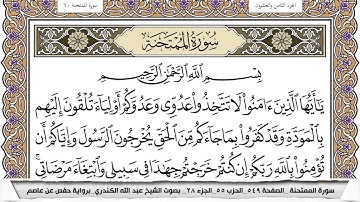 الجزء الثامن والعشرون
سورة الممتحنة ٦٠
سُورَةُ الْمُمْتَحَنَةِ
بِسْمِ اللَّهِ الرَّحْمَٰنِ الرَّحِيمِ
يَا أَيُّهَا الَّذِينَ ءَامَنُوا لَا تَتَّخِذُوا عَدُوِّي وَعَدُوَّكُمْ أَوْلِيَاءَ تُلْقُونَ إِلَيْهِم
بِالْمَوَدَّةِ وَقَدْ كَفَرُوا بِمَا جَاءَكُم مِّنَ الْحَقِّ يُخْرِجُونَ الرَّسُولَ وَإِيَّاكُمْ أَن
تُؤْمِنُوا بِاللَّهِ رَبِّكُمْ إِن كُنتُمْ خَرَجْتُمْ جِهَادًا فِي سَبِيلِي وَابْتِغَاءَ مَرْضَاتِي
سورة الممتحنة_ الصفحة ٥٤٩_ الحزب ٥٥_ الجزء ٢٨_ بصوت الشيخ عبد الله الكندري_ برواية حفص عن عاصم